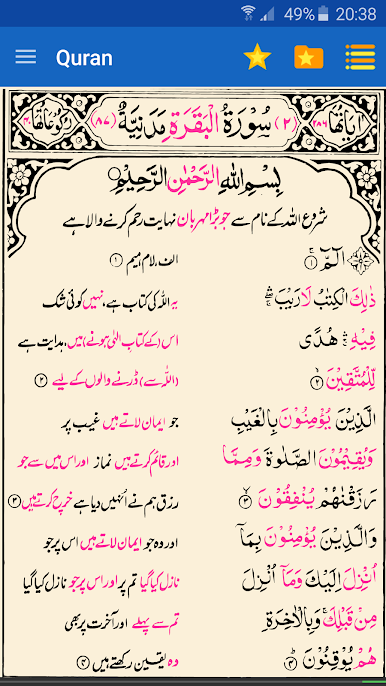 49% 20:38
Quran
اٰیاتھا ۲۸۶ (۲) سُوْرَۃُ الْبَقَرَۃِ مَدَنِیَّۃٌ (۸۷) رکوعاتھا ۴۰
بِسْمِ اللّٰهِ الرَّحْمٰنِ الرَّحِیْمِ
شروع اللہ کے نام سے جو بڑا مہربان نہایت رحم کرنے والا ہے
الٓمّٓ ۚ ۱ الف، لام، میم ۱
ذٰلِكَ الْكِتٰبُ لَا رَیْبَ ۛۚ یہ اللہ کی کتاب ہے، نہیں کوئی شک
فِیْهِ ۛۚ هُدًی اس (کے کتاب الٰہی ہونے) میں، ہدایت ہے
لِّلْمُتَّقِیْنَ ۙ ۲ (اللہ سے) ڈرنے والوں کے لیے ۲
الَّذِیْنَ یُؤْمِنُوْنَ بِالْغَیْبِ جو ایمان لاتے ہیں غیب پر
وَیُقِیْمُوْنَ الصَّلٰوةَ وَمِمَّا اور قائم کرتے ہیں نماز اور اس میں سے جو
رَزَقْنٰهُمْ یُنْفِقُوْنَ ۙ ۳ رزق ہم نے اُنہیں دیا ہے خرچ کرتے ہیں ۳
وَالَّذِیْنَ یُؤْمِنُوْنَ بِمَاۤ اور وہ جو ایمان لاتے ہیں اس پر جو
اُنْزِلَ اِلَیْكَ وَمَاۤ اُنْزِلَ نازل کیا گیا تم پر اور اس پر جو نازل کیا گیا
مِنْ قَبْلِكَ ۚ وَبِالْاٰخِرَةِ تم سے پہلے اور آخرت پر بھی
هُمْ یُوْقِنُوْنَ ؕ ۴ وہ یقین رکھتے ہیں ۴